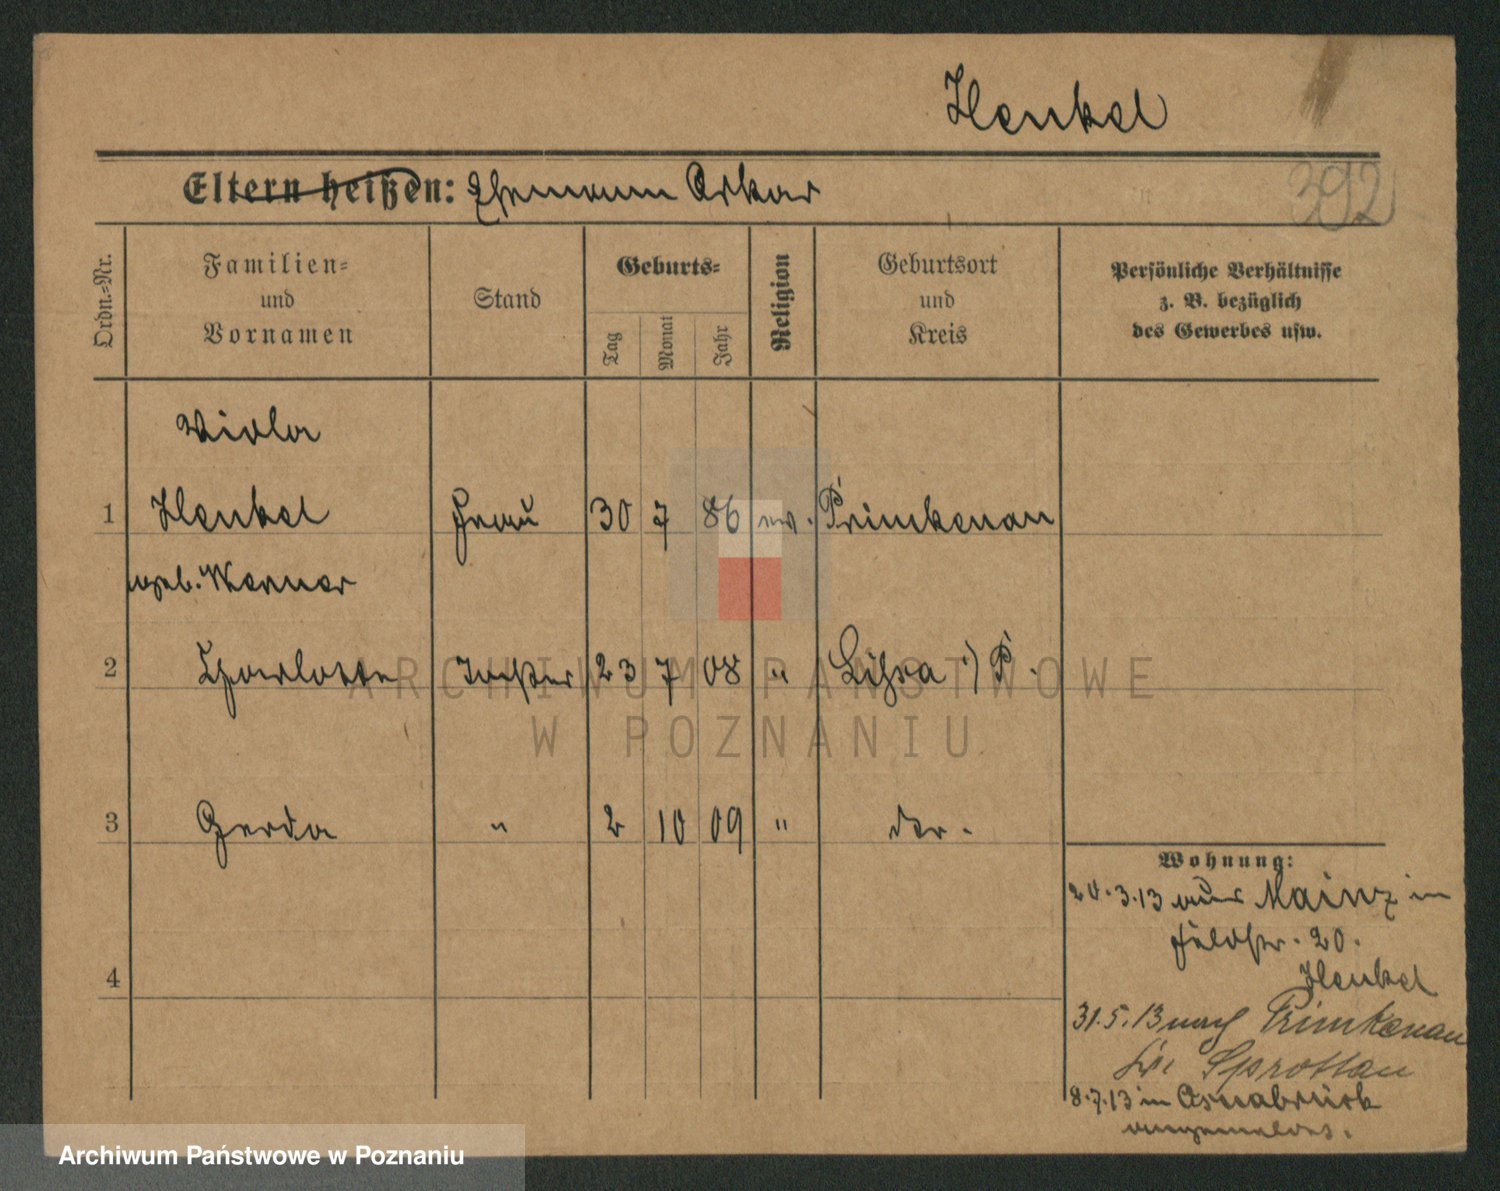 Henkel
392
Eltern heißen: Ehemann Oskar
Ordn.-Nr.
Familien-
und
Vornamen
Stand
Geburts-
Tag
Monat
Jahr
Religion
Geburtsort
und
Kreis
Persönliche Verhältnisse
z. B. bezüglich
des Gewerbes usw.
Viola
1 Henkel Frau 30 7 86 ev. Primkenau
geb. Werner
2 Charlotte Tochter 23 7 08 " Lissa i/P.
3 Gerda " 2 10 09 "
4
Wohnung:
24.3.13 aus Mainz in
Feldstr. 20.
Henkel
31.5.13 nach Primkenau
Kr. Sprottau
8.7.13 in Osnabrück
angemeldet.
ARCHIWUM PAŃSTWOWE
W POZNANIU
Archiwum Państwowe w Poznaniu